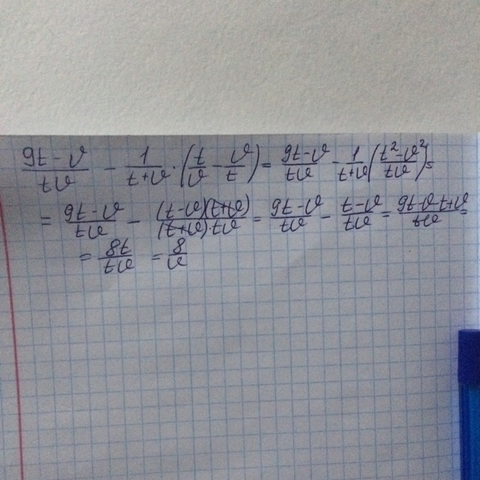 (9t-v)/(tv) - 1/(t+v) · (t/v - v/t) = (9t-v)/(tv) - 1/(t+v) ((t²-v²)/(tv)) =
= (9t-v)/(tv) - ((t-v)(t+v))/((t+v)·tv) = (9t-v)/(tv) - (t-v)/(tv) = (9t-v-t+v)/(tv) =
= 8t/(tv) = 8/v